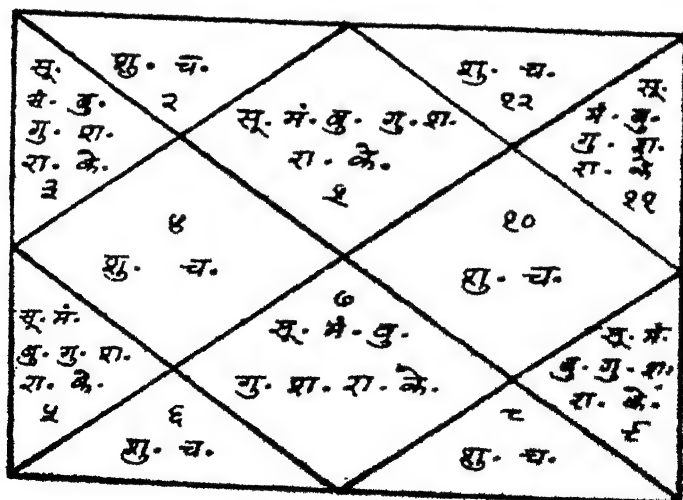 शु. च.
२
सू. मं. बु. गु. श.
रा. के.
१
शु. च.
१२
सू.
मं. बु.
गु. श.
रा. के.
३
सू.
मं. बु.
गु. श.
रा. के
११
४
शु. च.
१०
शु. च.
सू. मं.
बु. गु. श.
रा. के.
५
७
सू. मं. बु.
गु. श. रा. के.
सू. मं.
बु. गु. श.
रा. के.
९
६
शु. च.
८
शु. च.